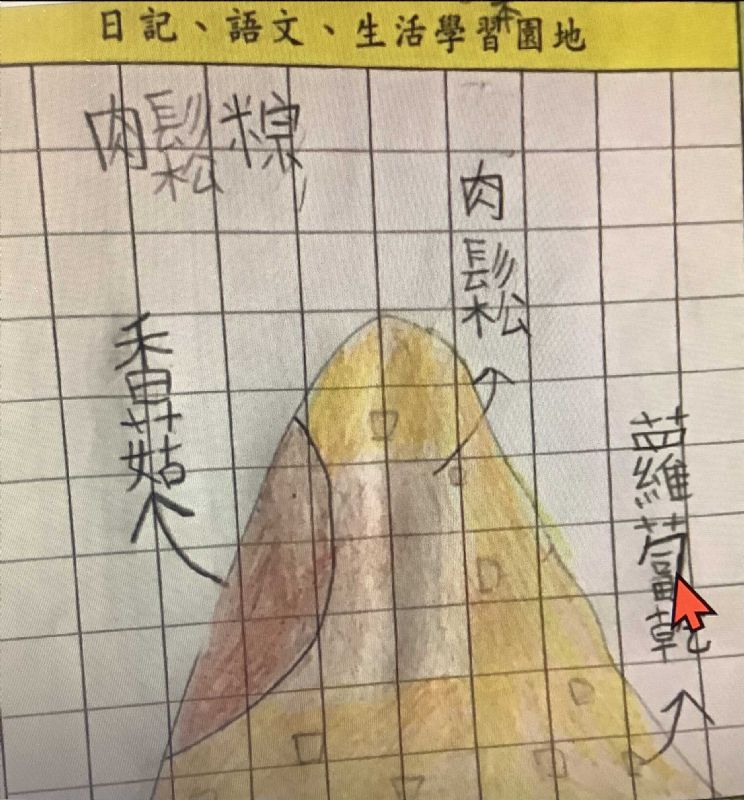 日記、語文、生活學習園地
肉鬆粽
肉鬆
香菇
蘿蔔乾